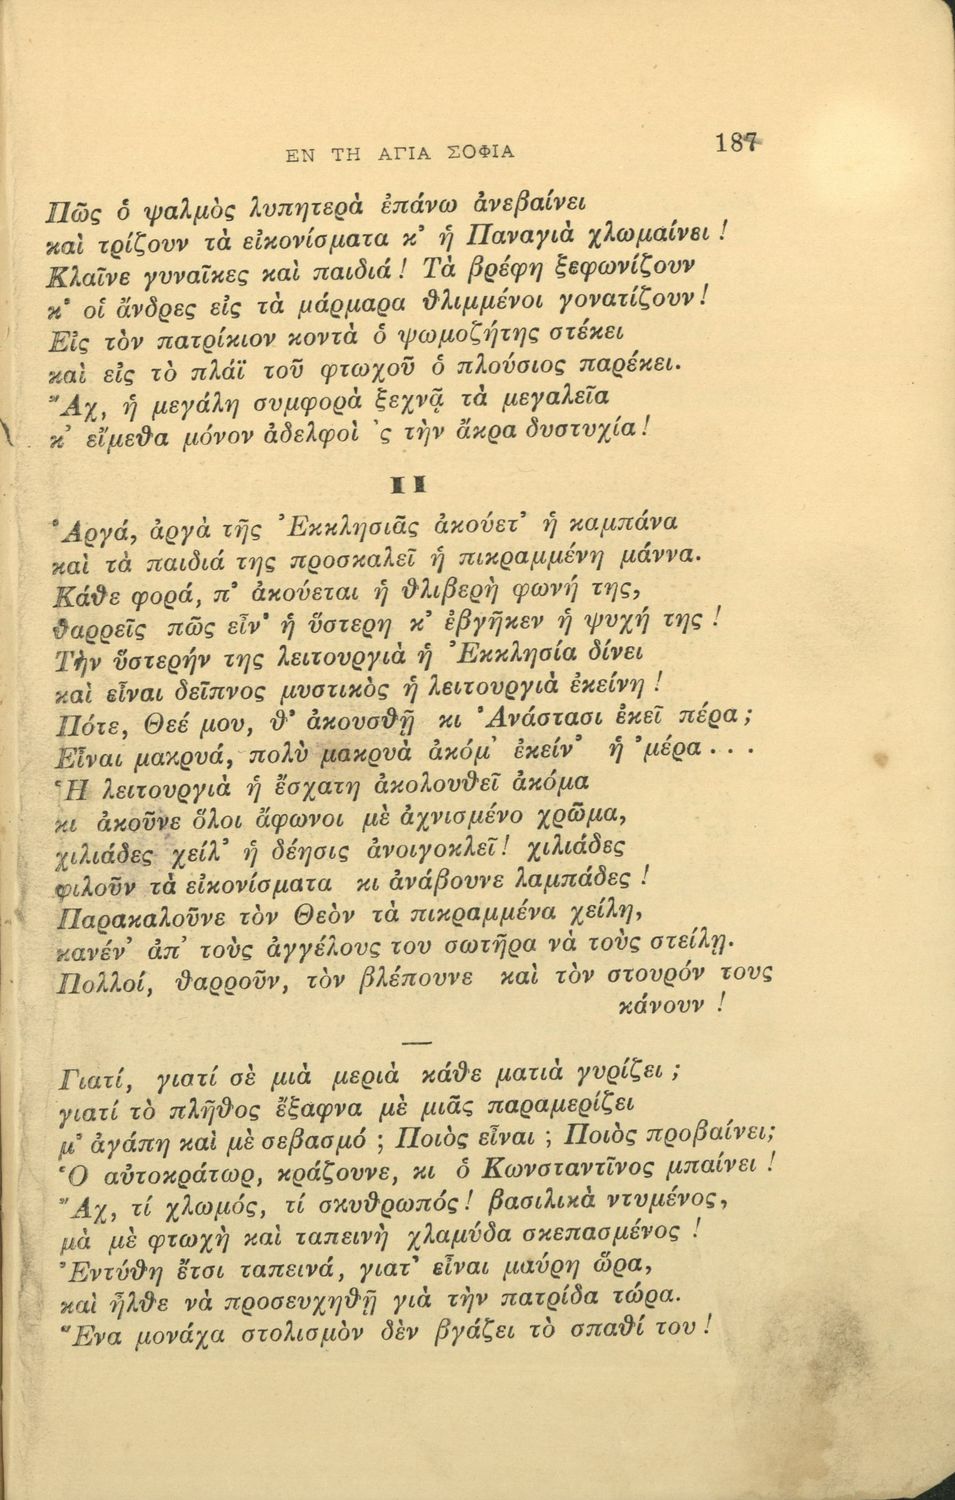 ΕΝ ΤΗ ΑΓΙΑ ΣΟΦΙΑ 187
Πῶς ὁ ψαλμὸς λυπητερὰ ἐπάνω ἀνεβαίνει
καὶ τρίζουν τὰ εἰκονίσματα κ’ ἡ Παναγιὰ χλωμαίνει !
Κλαῖνε γυναῖκες καὶ παιδιά ! Τὰ βρέφη ξεφωνίζουν
κ’ οἱ ἄνδρες εἰς τὰ μάρμαρα θλιμμένοι γονατίζουν !
Εἰς τὸν πατρίκιον κοντὰ ὁ ψωμοζήτης στέκει
καὶ εἰς τὸ πλάϊ τοῦ φτωχοῦ ὁ πλούσιος παρέκει.
Ἄχ, ἡ μεγάλη συμφορὰ ξεχνᾷ τὰ μεγαλεῖα
κ’ εἴμεθα μόνον ἀδελφοὶ ’ς τὴν ἄκρα δυστυχία !
II
Ἀργά, ἀργὰ τῆς Ἐκκλησιᾶς ἀκούετ’ ἡ καμπάνα
καὶ τὰ παιδιά της προσκαλεῖ ἡ πικραμμένη μάννα.
Κάθε φορά, π’ ἀκούεται ἡ θλιβερὴ φωνή της,
θαρρεῖς πῶς εἶν’ ἡ ὕστερη κ’ ἐβγῆκεν ἡ ψυχή της !
Τὴν ὕστερήν της λειτουργιὰ ἡ Ἐκκλησία δίνει
καὶ εἶναι δεῖπνος μυστικὸς ἡ λειτουργιὰ ἐκείνη !
Πότε, Θεέ μου, θ’ ἀκουσθῇ κι Ἀνάστασι ἐκεῖ πέρα ;
Εἶναι μακρυά, πολὺ μακρυὰ ἀκόμ’ ἐκείν’ ἡ ’μέρα . . .
Ἡ λειτουργιὰ ἡ ἔσχατη ἀκολουθεῖ ἀκόμα
κι ἀκοῦνε ὅλοι ἄφωνοι μὲ ἀχνισμένο χρῶμα,
χιλιάδες χείλ’ ἡ δέησις ἀνοιγοκλεῖ ! χιλιάδες
φιλοῦν τὰ εἰκονίσματα κι ἀνάβουνε λαμπάδες !
Παρακαλοῦνε τὸν Θεὸν τὰ πικραμμένα χείλη,
κανέν’ ἀπ’ τοὺς ἀγγέλους του σωτῆρα νὰ τοὺς στείλῃ.
Πολλοί, θαρροῦν, τὸν βλέπουνε καὶ τὸν στουρόν τους
κάνουν !
Γιατί, γιατί σὲ μιὰ μεριὰ κάθε ματιὰ γυρίζει ;
γιατί τὸ πλῆθος ἔξαφνα μὲ μιᾶς παραμερίζει
μ’ ἀγάπη καὶ μὲ σεβασμό ; Ποιὸς εἶναι ; Ποιὸς προβαίνει ;
Ὁ αὐτοκράτωρ, κράζουνε, κι ὁ Κωνσταντῖνος μπαίνει !
Ἄχ, τί χλωμός, τί σκυθρωπός ! βασιλικὰ ντυμένος,
μὰ μὲ φτωχὴ καὶ ταπεινὴ χλαμύδα σκεπασμένος !
Ἐντύθη ἔτσι ταπεινά, γιατ’ εἶναι μαύρη ὥρα,
καὶ ἦλθε νὰ προσευχηθῇ γιὰ τὴν πατρίδα τώρα.
Ἕνα μονάχα στολισμὸν δὲν βγάζει τὸ σπαθί του !